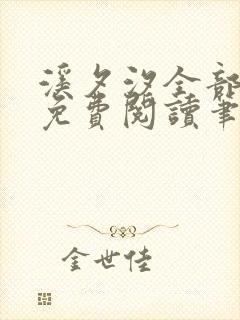 溪夕汐全部
免費閱讀筆
金世佳